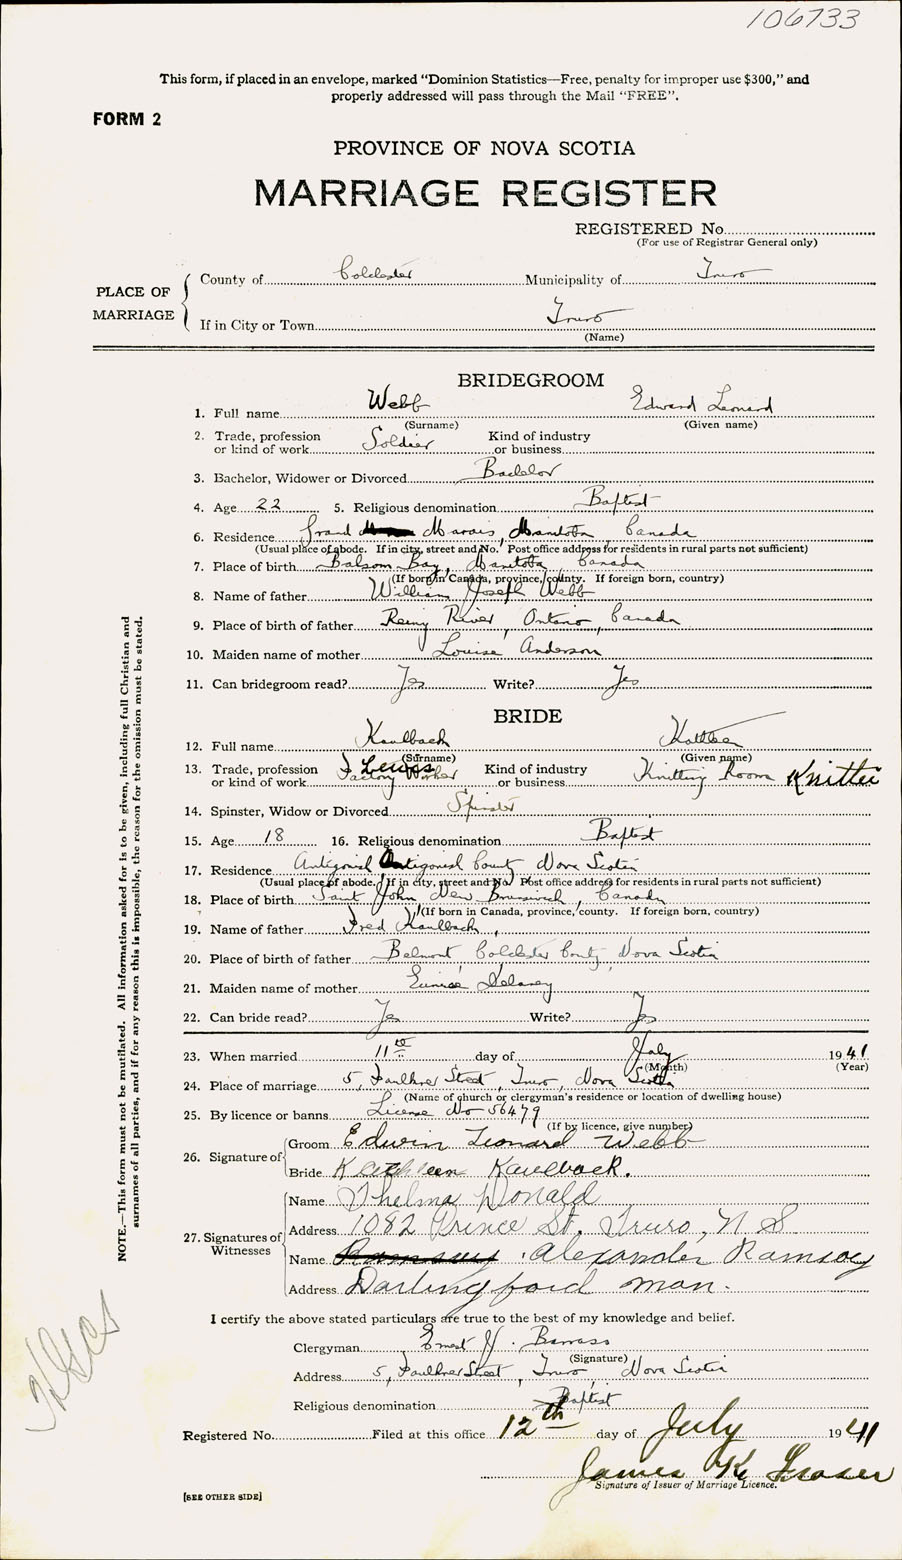 106733
This form, if placed in an envelope, marked "Dominion Statistics—Free, penalty for improper use $300," and
properly addressed will pass through the Mail "FREE".
FORM 2
PROVINCE OF NOVA SCOTIA
MARRIAGE REGISTER
REGISTERED No
(For use of Registrar General only)
PLACE OF MARRIAGE
County of Colchester Municipality of Truro
If in City or Town Truro
(Name)
BRIDEGROOM
1. Full name Webb Edward Leonard
(Surname) (Given name)
2. Trade, profession or kind of work Soldier Kind of industry or business
3. Bachelor, Widower or Divorced Bachelor
4. Age 22 5. Religious denomination Baptist
6. Residence Grand Marais, Manitoba Canada
(Usual place of abode. If in city, street and No. Post office address for residents in rural parts not sufficient)
7. Place of birth Balsom Bay, Manitoba Canada
(If born in Canada, province, county. If foreign born, country)
8. Name of father William Joseph Webb
9. Place of birth of father Rainy River, Ontario, Canada
10. Maiden name of mother Louise Anderson
11. Can bridegroom read? Yes Write? Yes
BRIDE
12. Full name Kaulback
(Surname) (Given name)
13. Trade, profession or kind of work Factory Worker Kind of industry or business Knitting Room Knitter
14. Spinster, Widow or Divorced Spinster
15. Age 18 16. Religious denomination Baptist
17. Residence Antigonish Antigonish County Nova Scotia
(Usual place of abode. If in city, street and No. Post office address for residents in rural parts not sufficient)
18. Place of birth Saint John New Brunswick, Canada
(If born in Canada, province, county. If foreign born, country)
19. Name of father Fred Kaulback,
20. Place of birth of father Belmont Colchester County, Nova Scotia
21. Maiden name of mother Eunice Delaney
22. Can bride read? Yes Write? Yes
23. When married 11th day of July 1941
(Month) (Year)
24. Place of marriage 5, Faulkner Street, Truro, Nova Scotia
(Name of church or clergyman's residence or location of dwelling house)
25. By licence or banns License No 56479
(If by licence, give number)
26. Signature of
Groom Edwin Leonard Webb
Bride Kathleen Kaulback.
27. Signatures of Witnesses
Name Thelma Donald
Address 1082 Prince St, Truro, N S
Name Alexander Ramsay
Address Darlingford Man.
I certify the above stated particulars are true to the best of my knowledge and belief.
Clergyman Ernest J. Barrass
(Signature)
Address 5, Faulkner Street, Truro, Nova Scotia
Religious denomination Baptist
Registered No. Filed at this office 12th day of July 1941
James K Fraser
Signature of Issuer of Marriage Licence.
[SEE OTHER SIDE]
NOTE.—This form must not be mutilated. All information asked for is to be given, including full Christian and
surnames of all parties, and if for any reason this is impossible, the reason for the omission must be stated.